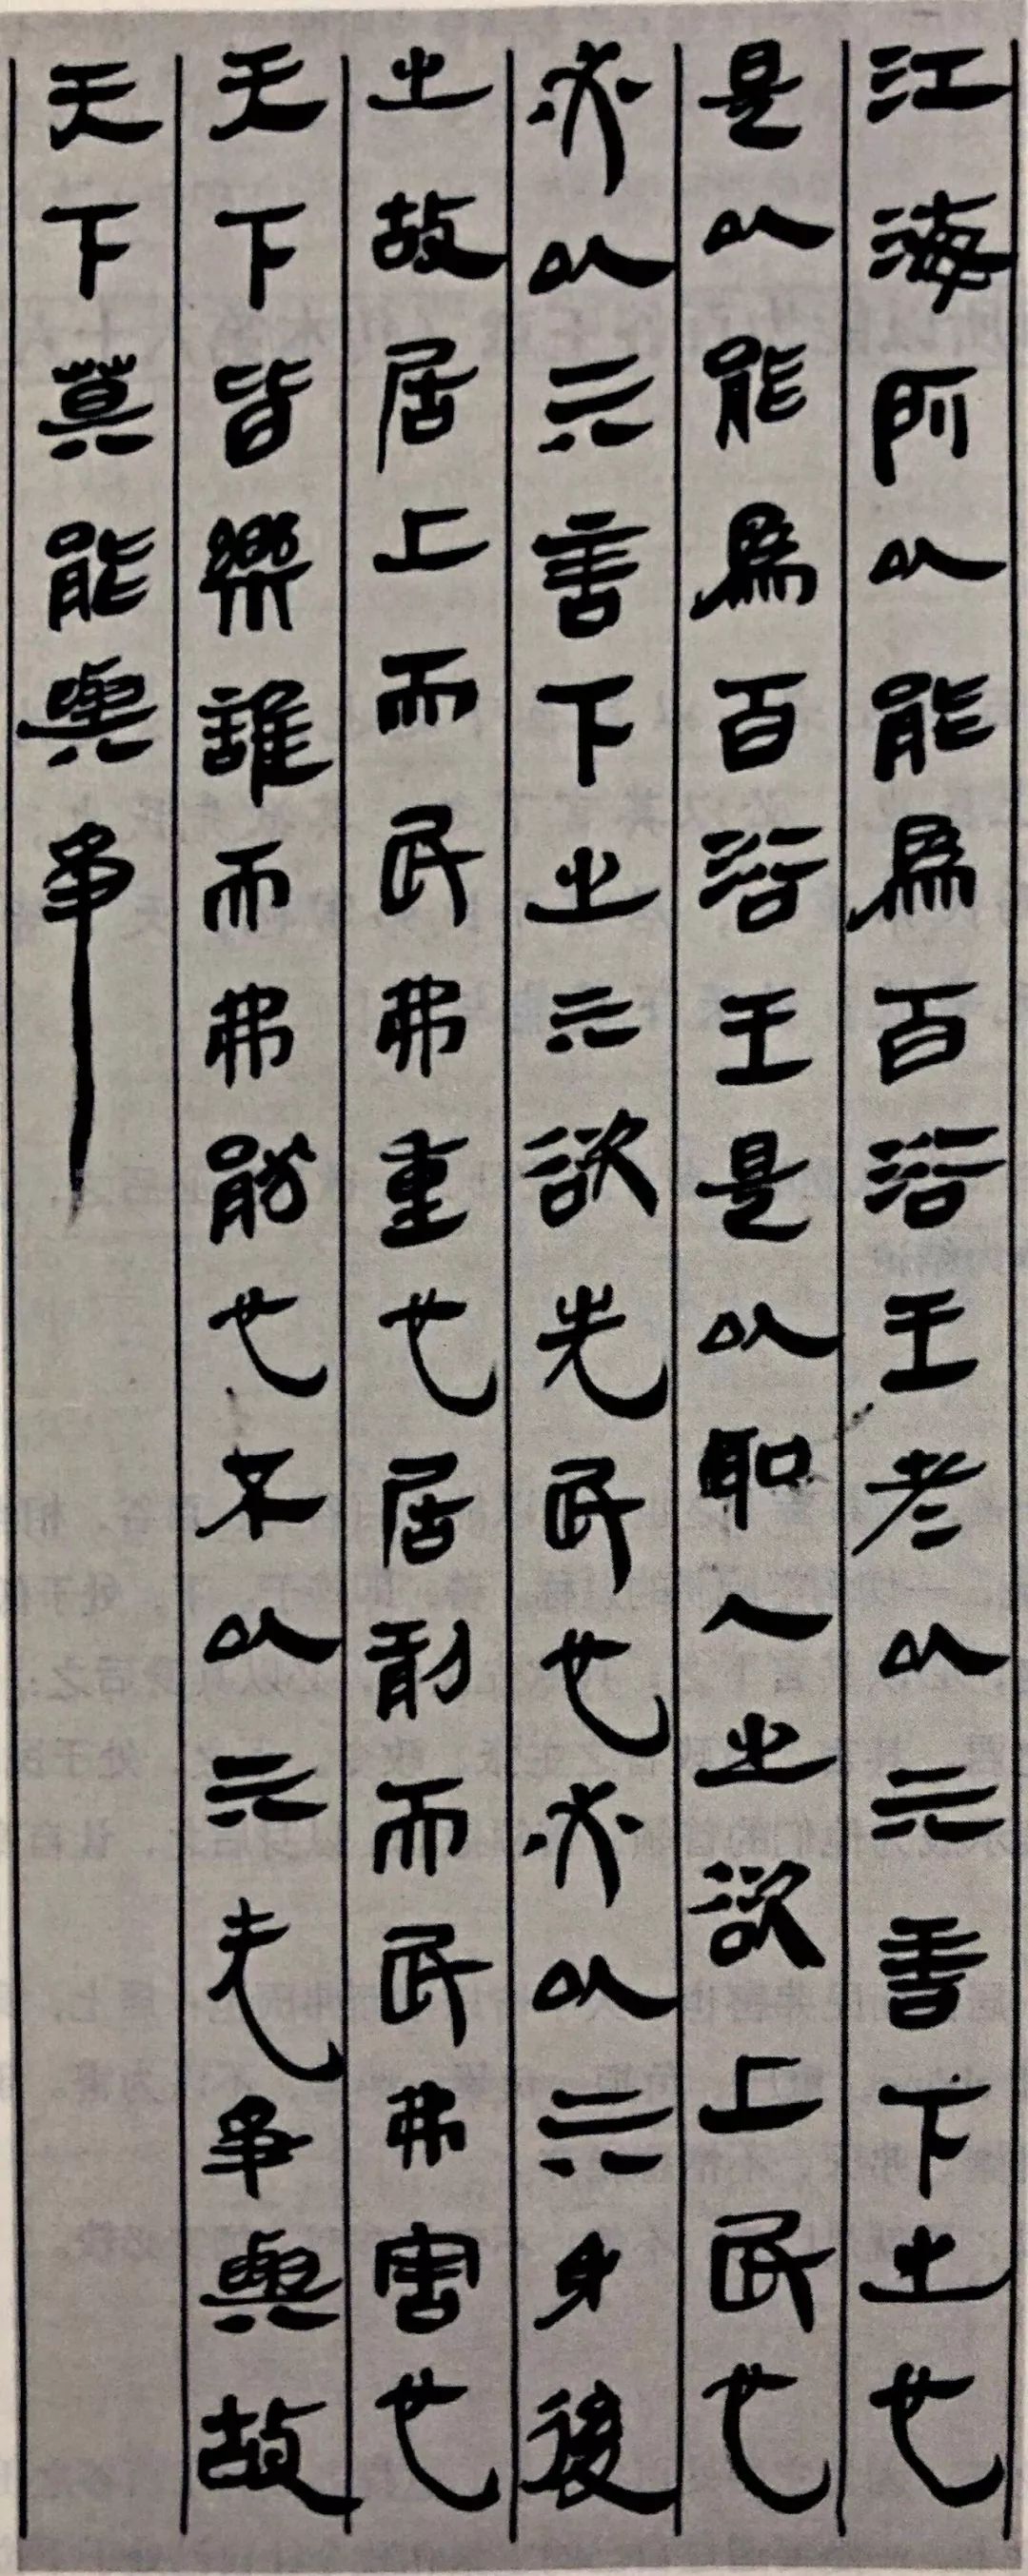 江海所以能爲百浴王者以亓善下之也
是以能爲百浴王是以耴人之欲上民也
必以亓言下之亓欲先民也必以亓身後
之故居上而民弗重也居前而民弗害也
天下皆樂誰而弗猒也不以亓无争與故
天下莫能與争